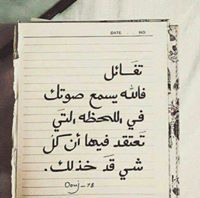 DATE NO
تفَائل
فالله يسمع صوتك
في اللحظه التي
تَعتقد فيها أن كل
شي قَد خذلك.